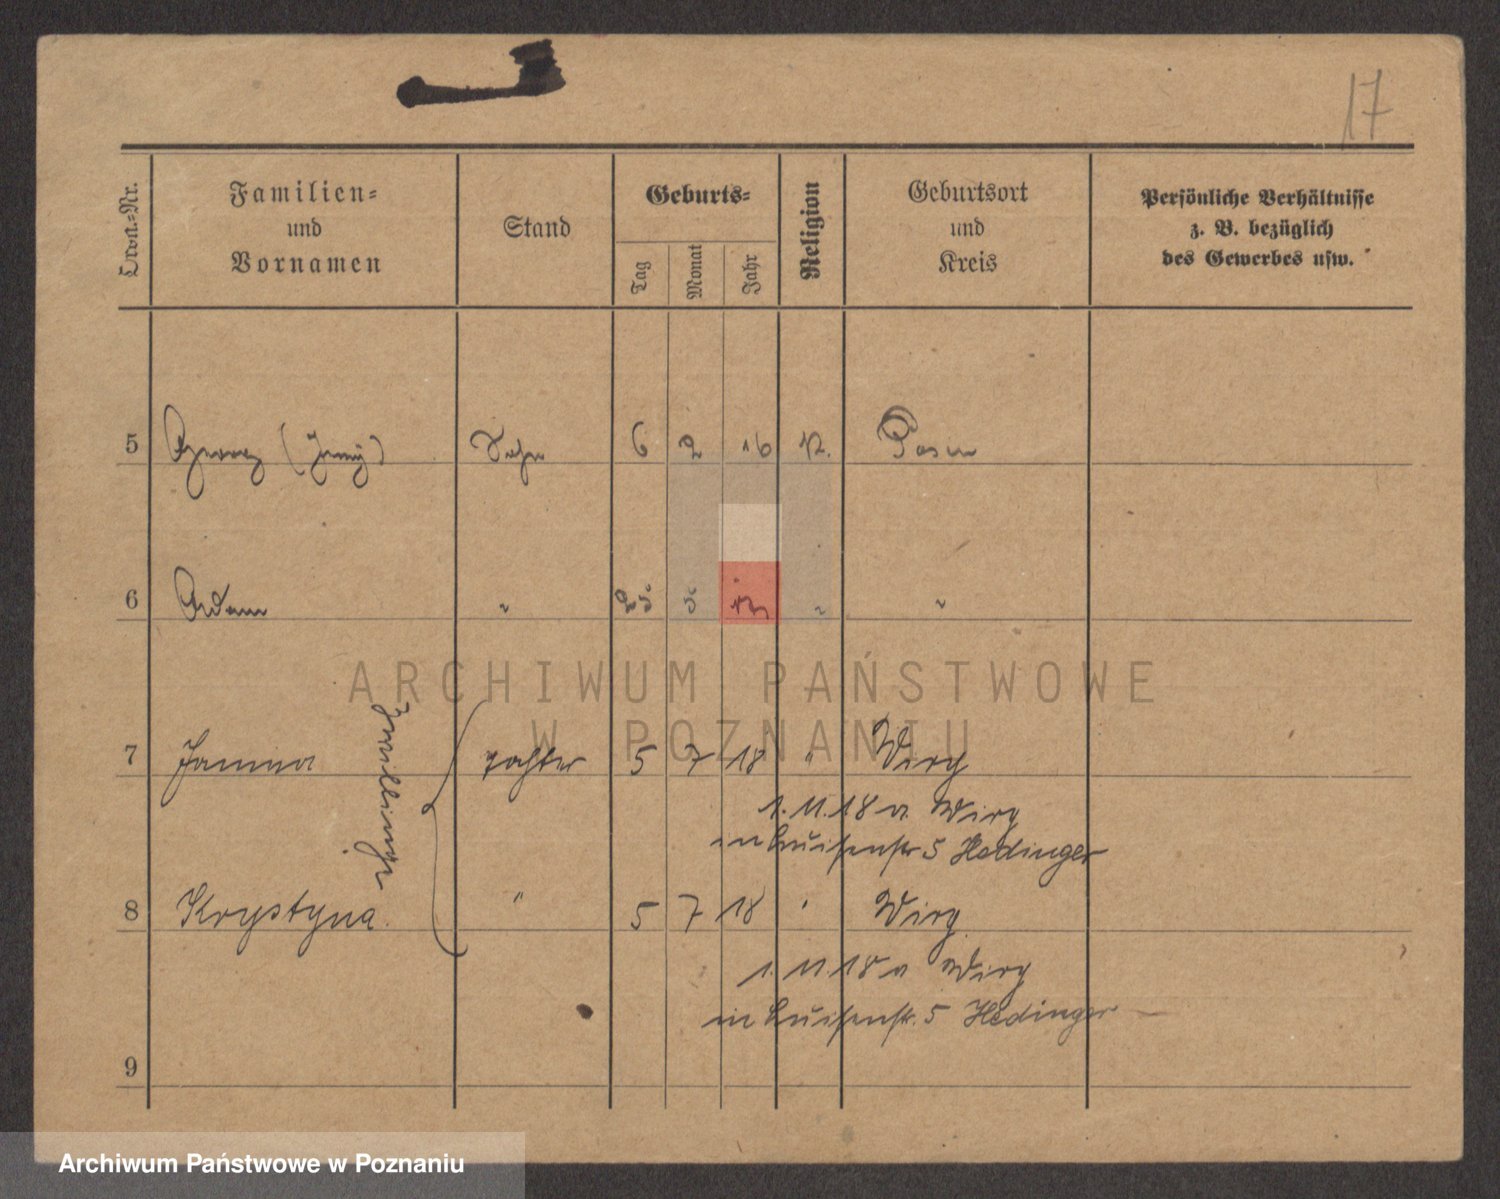 17
Ordn.-Nr.
Familien-
und
Vornamen
Stand
Geburts-
Tag
Monat
Jahr
Religion
Geburtsort
und
Kreis
Persönliche Verhältnisse
z. B. bezüglich
des Gewerbes usw.
5 (Jerzy) Sohn 6 2 16 Posen
6 Adam " "
ARCHIWUM PAŃSTWOWE
W POZNANIU
Zwillinge
7 Janina Tochter 5 7 18 " Wirg
1. 11. 18 a. Wirg
in Luisenstr 5 Hedinger
8 Krystyna. " 5 7 18 " Wirg.
1. 11. 18 a Wirg
in Luisenstr. 5 Hedinger
9
Archiwum Państwowe w Poznaniu